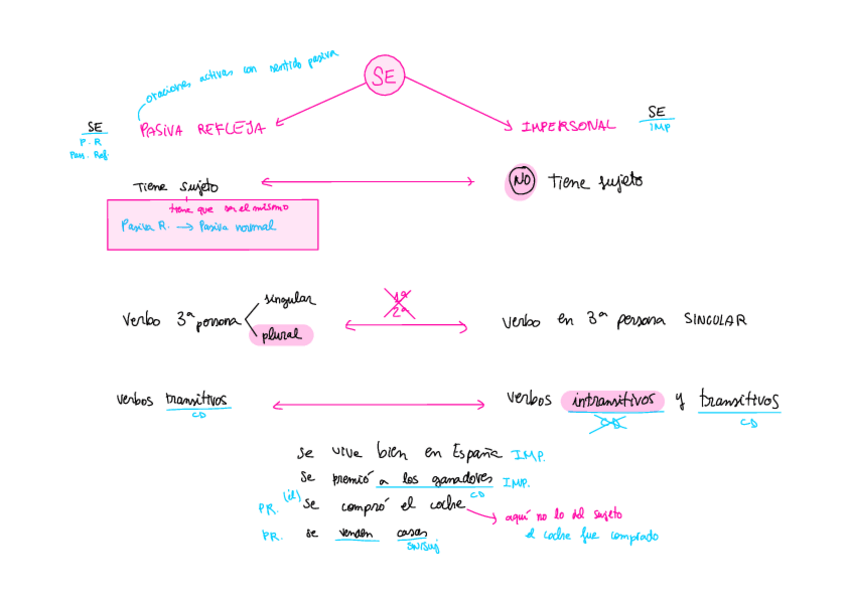 oraciones activas con sentido pasiva
SE
SE
P. R
Pas. Ref.
PASIVA REFLEJA
IMPERSONAL
SE
IMP
Tiene sujeto
NO tiene sujeto
tiene que ser el mismo
Pasiva R. → Pasiva normal
verbo 3ª persona
singular
plural
1ª
2ª
verbo en 3ª persona SINGULAR
verbos transitivos
CD
verbos intransitivos y transitivos
CD
CD
se vive bien en España IMP.
se premió a los ganadores IMP.
CD
PR. (él) se compró el coche
aquí no lo del sujeto
el coche fue comprado
PR. se venden casas
SN/Suj